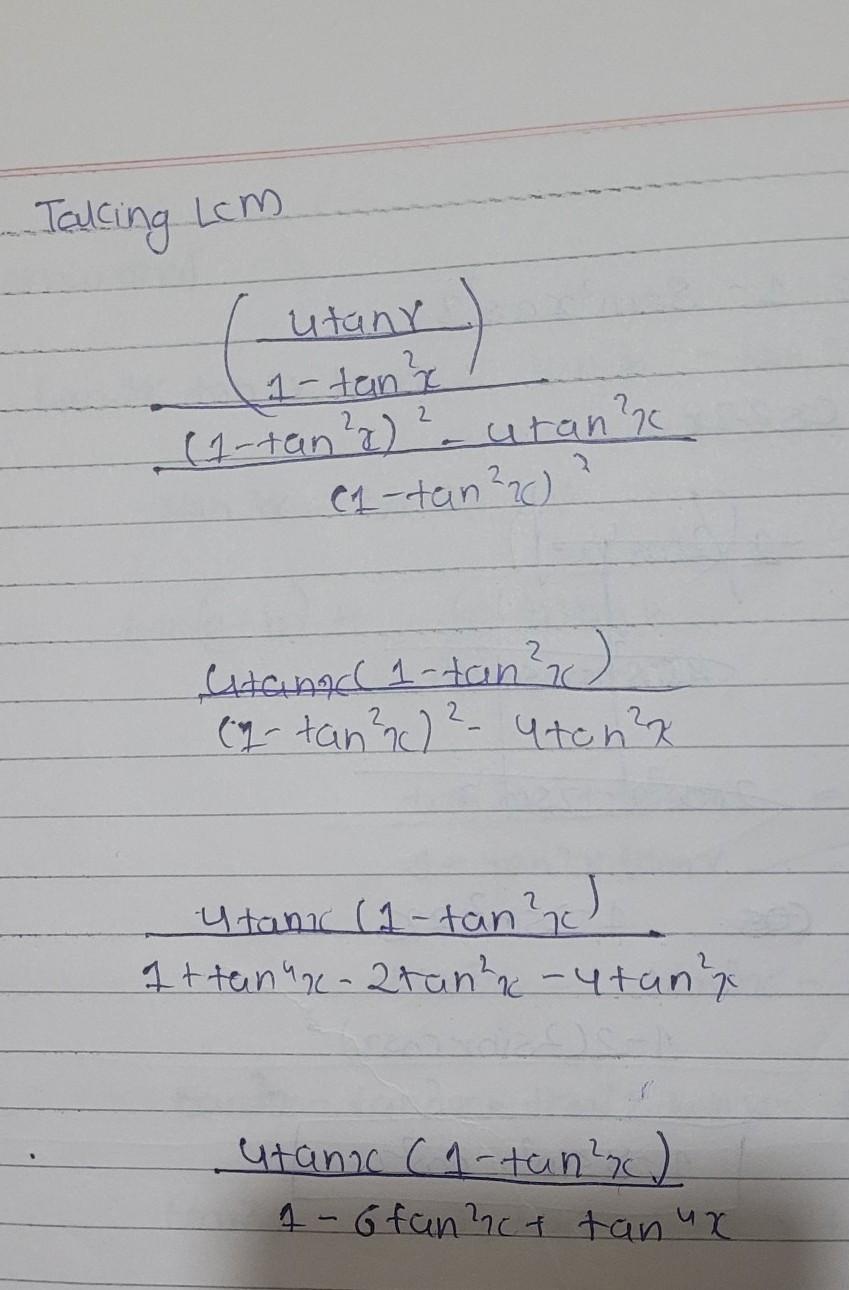 Taking LCM
(4tanx
1-tan²x)
(1-tan²x)² - 4tan²x
(1-tan²x)²
4tanx(1-tan²x)
(1-tan²x)² - 4tan²x
4tanx (1-tan²x)
1+tan⁴x - 2tan²x - 4tan²x
4tanx (1-tan²x)
1 - 6tan²x + tan⁴x